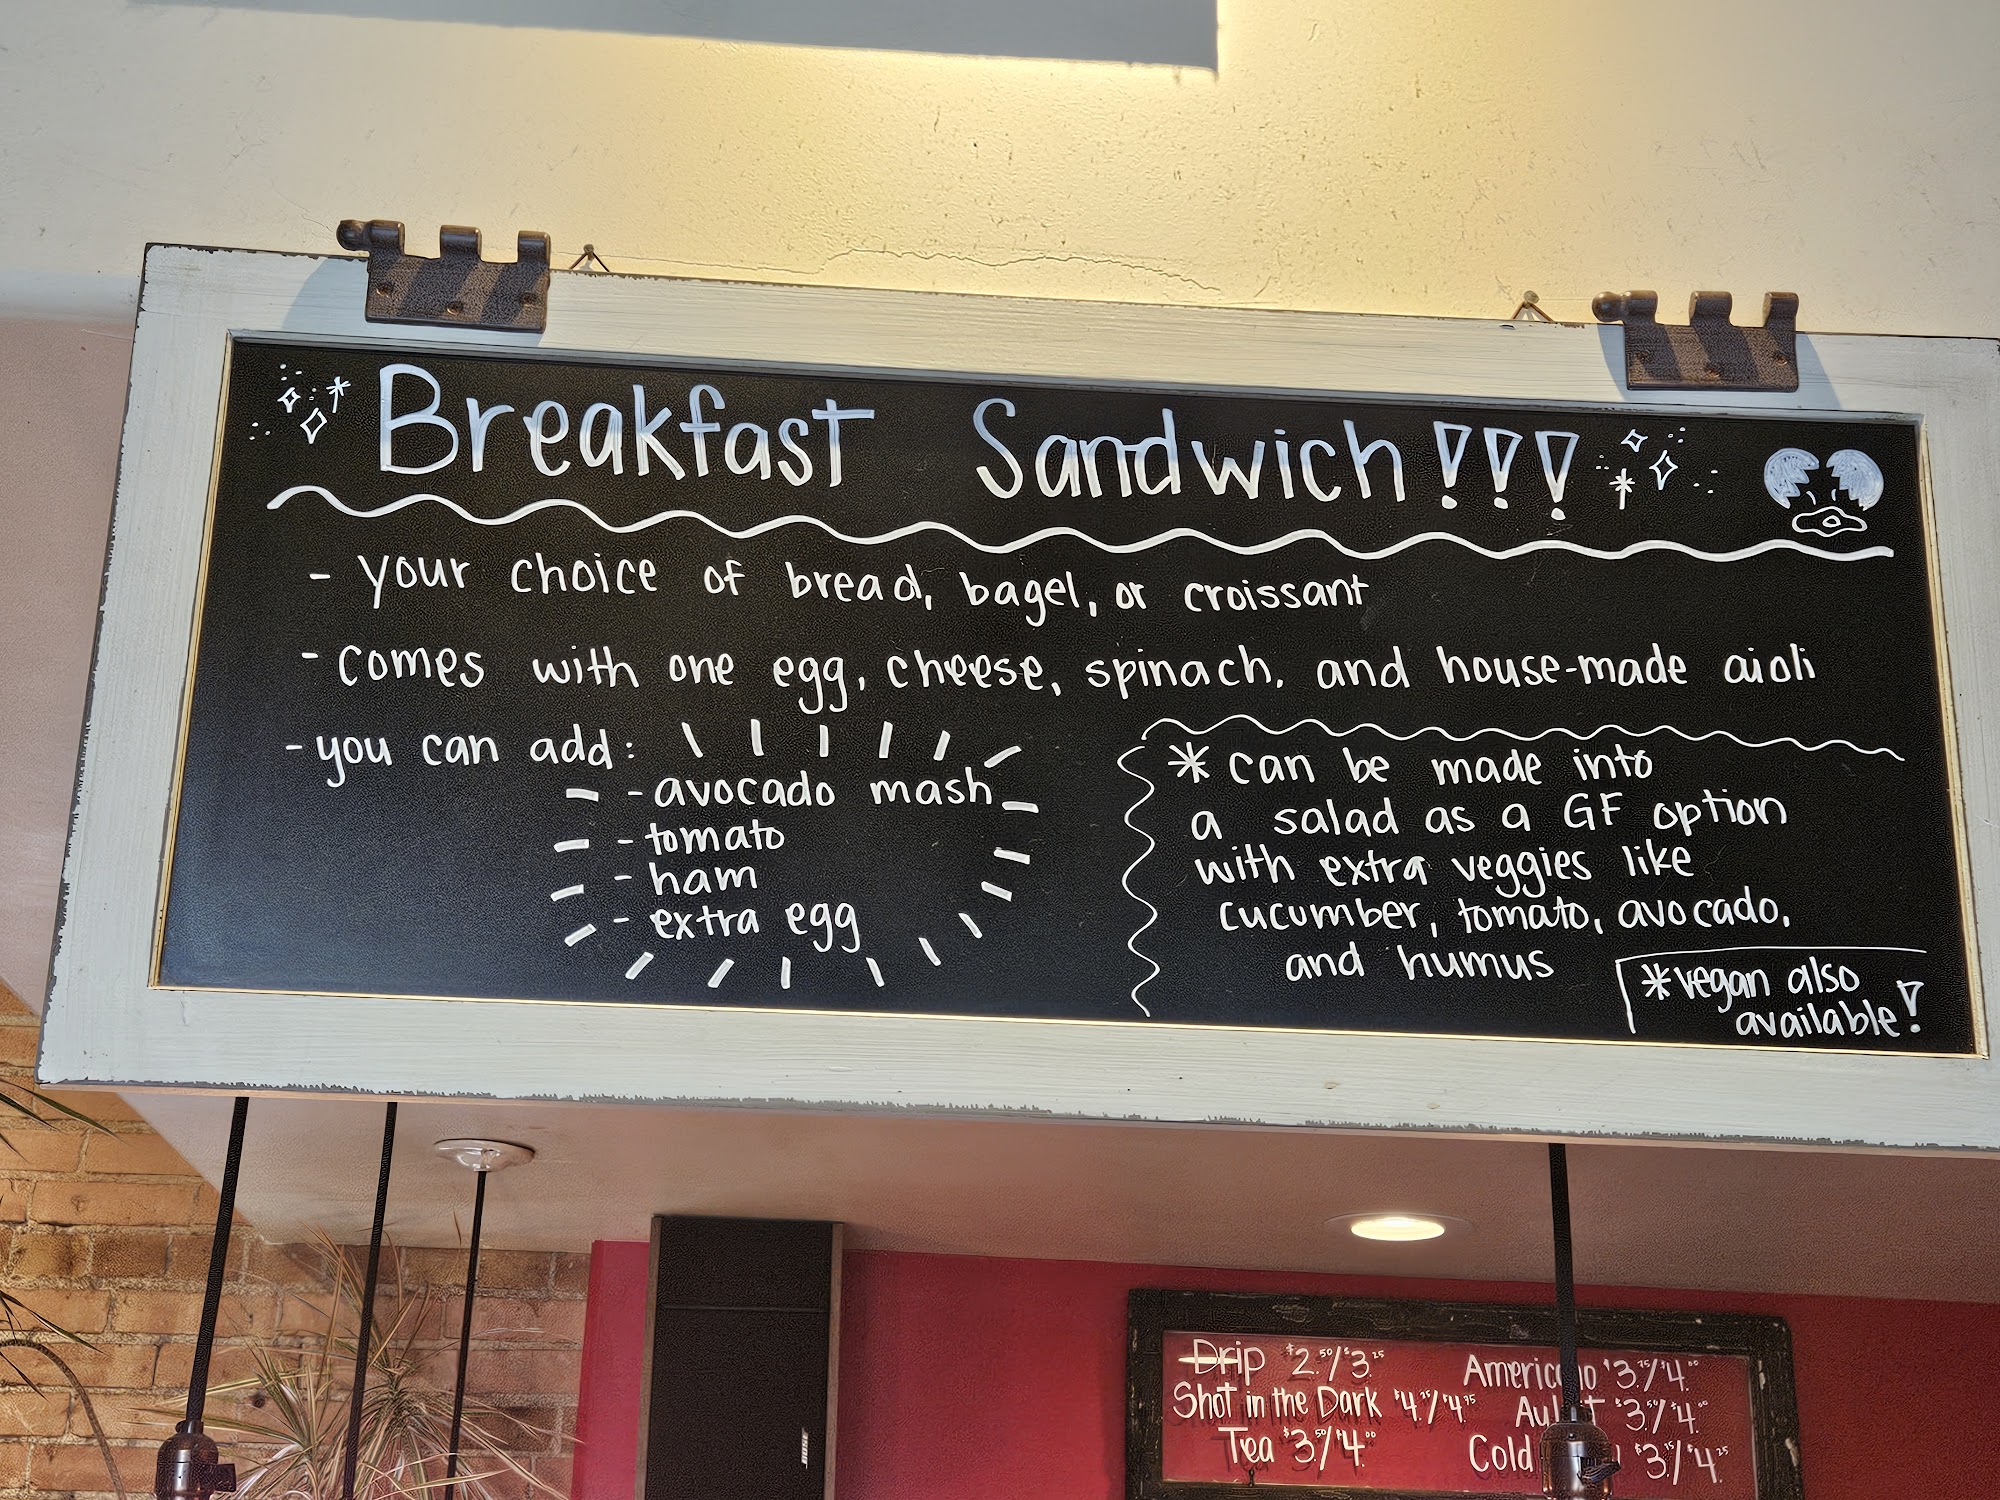 Breakfast Sandwich!!!
- your choice of bread, bagel, or croissant
- comes with one egg, cheese, spinach, and house-made aioli
- you can add:
- avocado mash
- tomato
- ham
- extra egg
* can be made into
a salad as a GF option
with extra veggies like
cucumber, tomato, avocado,
and humus
* vegan also
available!
Drip $2.50/3.25
Shot in the Dark $4.25/$4.75
Tea $3.50/$4.00
Americano $3.75/$4.00
$3.50/$4.00
Cold $3.75/$4.25